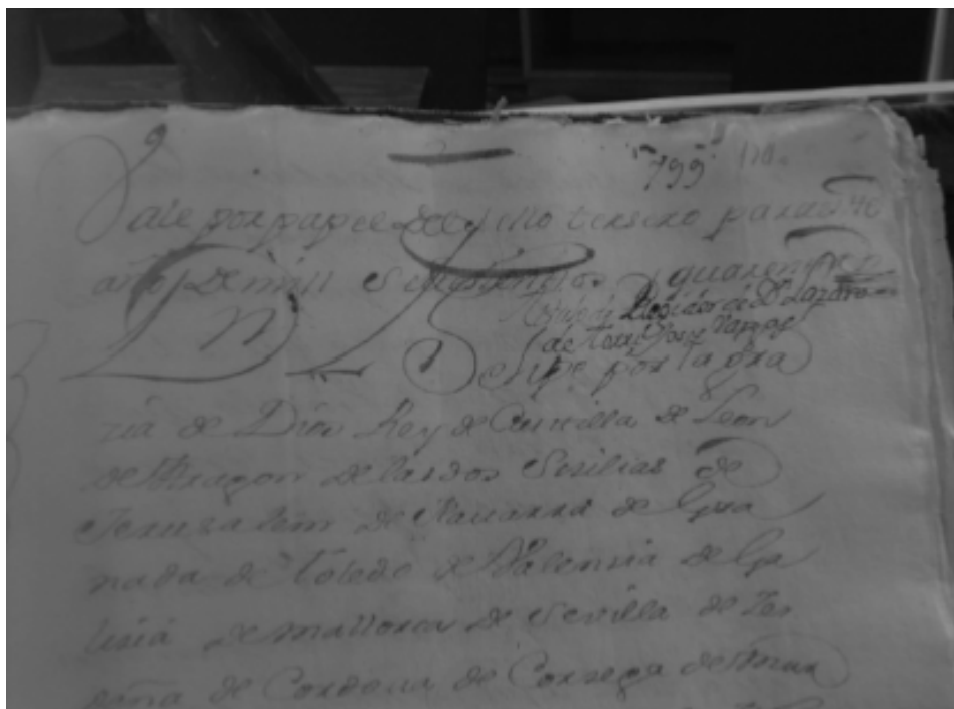 799 170
Vale por papel del sello tersero para el
año de mill setesientos y quarenta
titulo de Rexidor de Dn Lazaro
de
Dn Phelipe por la Gra
zia de Dios Rey de Castilla de Leon
de Aragon de las dos Sicilias de
Jerusalem de Nauarra de Gra
nada de Toledo de Valencia de Ga
lizia de Mallorca de Sevilla de Zer
deña de Cordoua de Corsega de Mur